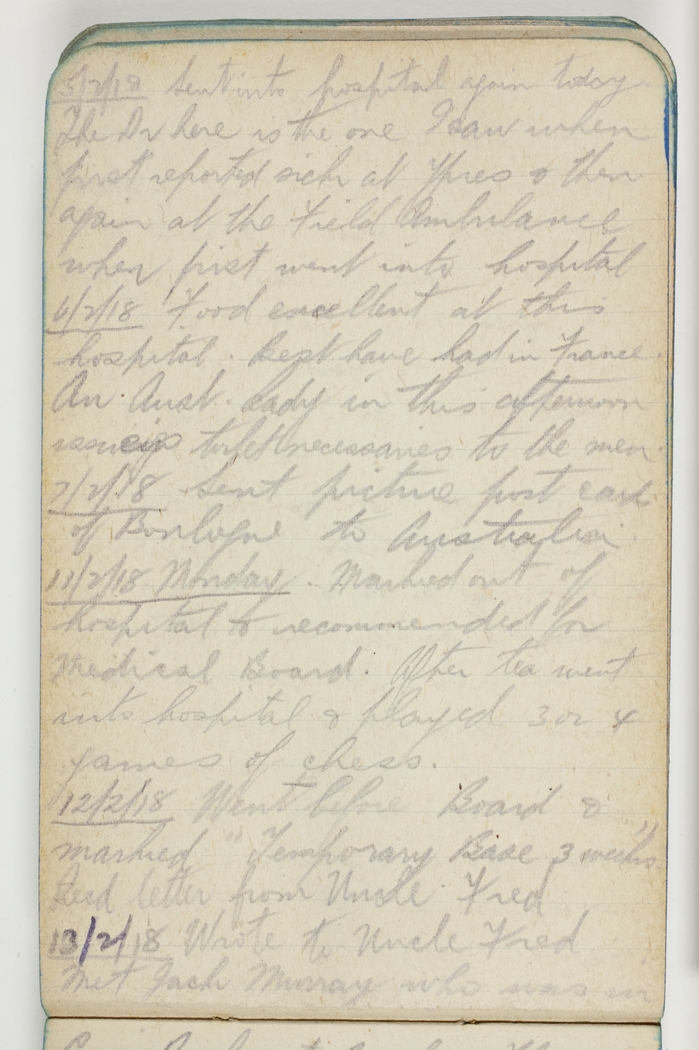 5/2/18 Sent into hospital again today
The Dr here is the one I saw when
first reported sick at Ypres & then
again at the Field Ambulance
when first went into hospital
6/2/18 Food excellent at this
hospital. Best have had in France.
An Aust. Lady in this afternoon
issuing toilet necessaries to the men.
7/2/18 Sent picture post card
of Boulogne to Australia
11/2/18 Monday. Marked out of
hospital & recommended for
Medical Board. After tea went
into hospital & played 3 or 4
games of chess.
12/2/18 Went before Board &
marked "Temporary Base 3 weeks"
Recd letter from Uncle Fred
13/2/18 Wrote to Uncle Fred
Met Jack Murray who was in